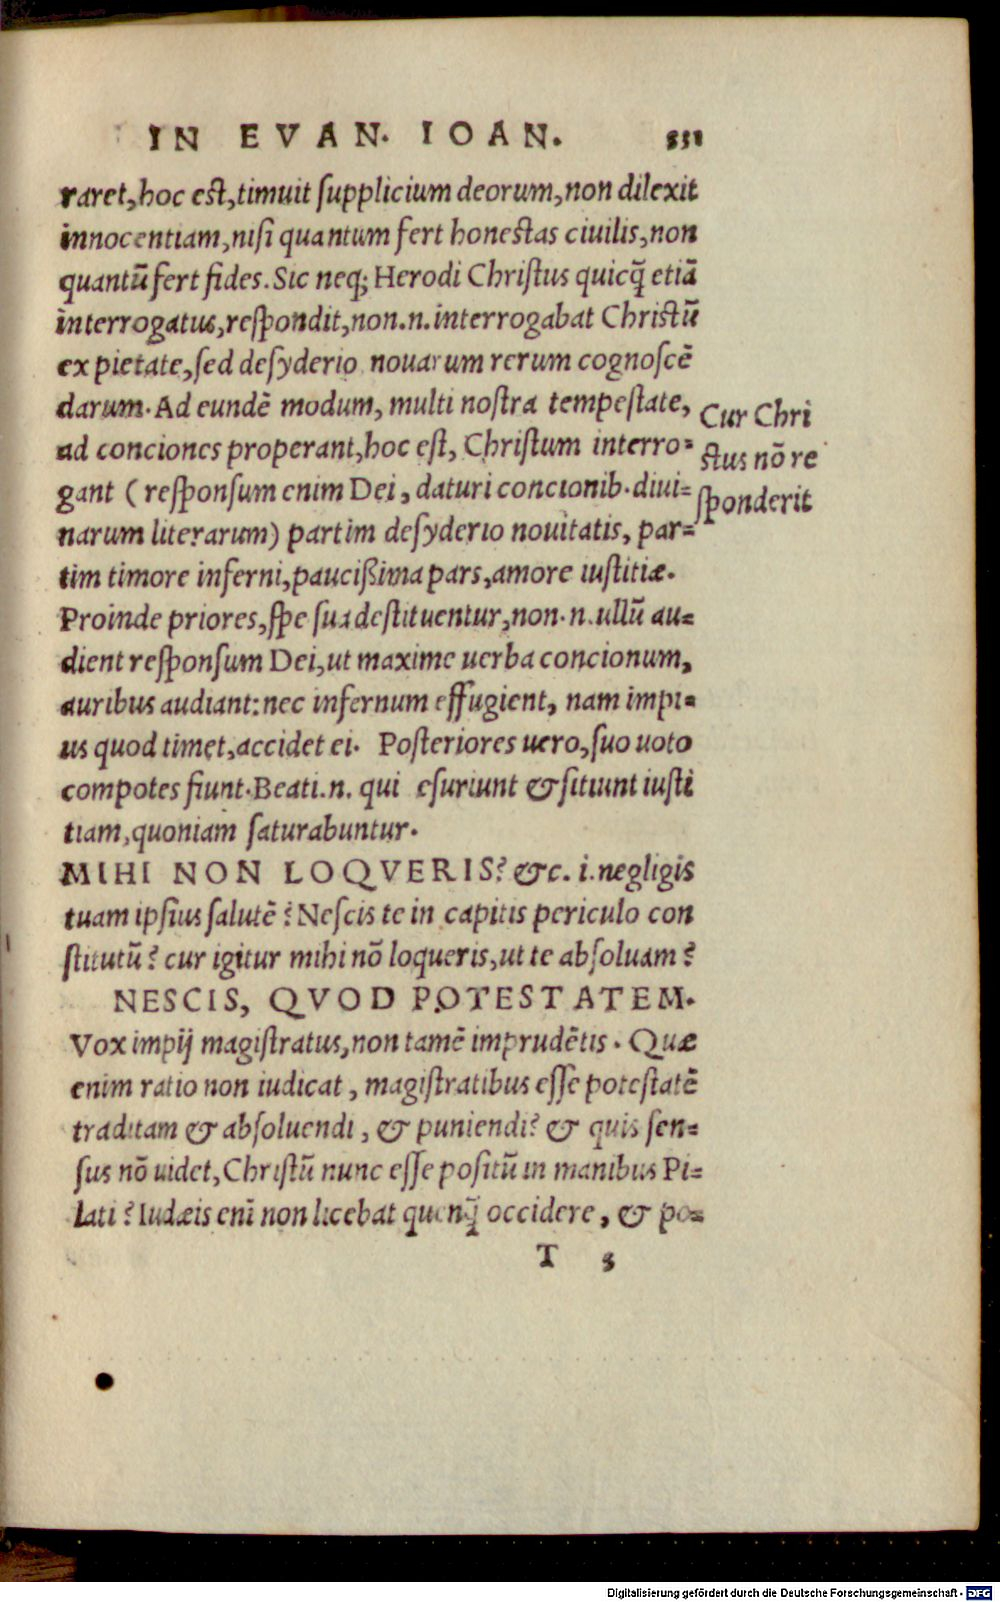 IN EVAN. IOAN. 331
raret, hoc est, timuit supplicium deorum, non dilexit
innocentiam, nisi quantum fert honestas ciuilis, non
quantū fert fides. Sic neq; Herodi Christus quicq̃ etiā
interrogatus, respondit, non.n. interrogabat Christū
ex pietate, sed desyderio nouarum rerum cognoscē
darum. Ad eundē modum, multi nostra tempestate,
ad conciones properant, hoc est, Christum interro-
gant (responsum enim Dei, daturi concionib. diui-
narum literarum) partim desyderio nouitatis, par-
tim timore inferni, paucißima pars, amore iustitiæ.
Cur Chri
stus nō re
sponderit
Proinde priores, spe sua destituentur, non.n. ullū au-
dient responsum Dei, ut maxime uerba concionum,
auribus audiant: nec infernum effugient, nam impi-
us quod timet, accidet ei. Posteriores uero, suo uoto
compotes fiunt. Beati.n. qui esuriunt & sitiunt iusti
tiam, quoniam saturabuntur.
MIHI NON LOQVERIS? &c. i. negligis
tuam ipsius salutē? Nescis te in capitis periculo con
stitutū? cur igitur mihi nō loqueris, ut te absoluam?
NESCIS, QVOD POTESTATEM.
Vox impij magistratus, non tamē imprudētis. Quæ
enim ratio non iudicat, magistratibus esse potestatē
traditam & absoluendi, & puniendi? & quis sen-
sus nō uidet, Christū nunc esse positū in manibus Pi-
lati? Iudæis enī non licebat quenq̃ occidere, & po-
T 3
Digitalisierung gefördert durch die Deutsche Forschungsgemeinschaft - DFG